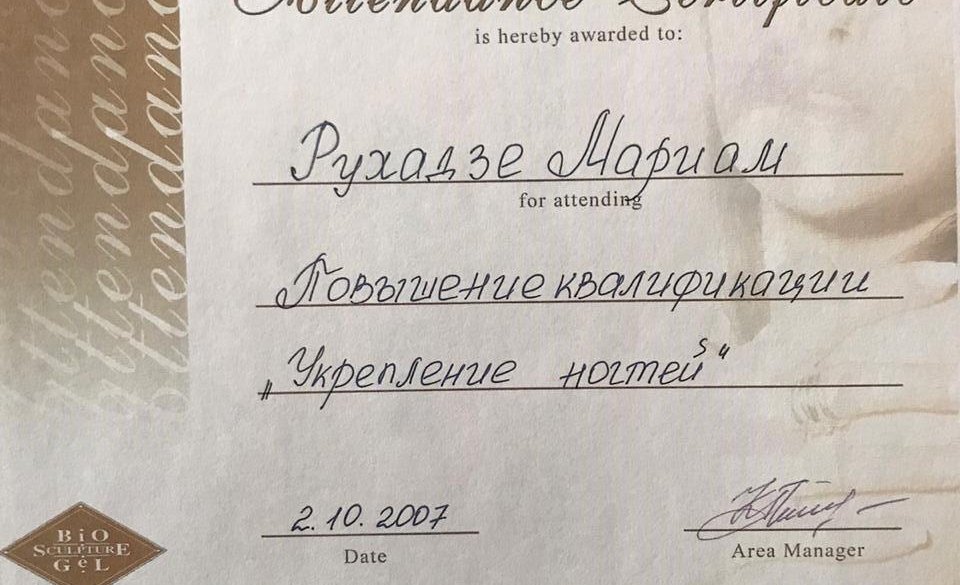 Attendance Certificate
is hereby awarded to:
Рухадзе Мариам
for attending
Повышение квалификации
„Укрепление ногтей"
2.10.2007
Date
Area Manager
BiO
SCULPTURE
GeL